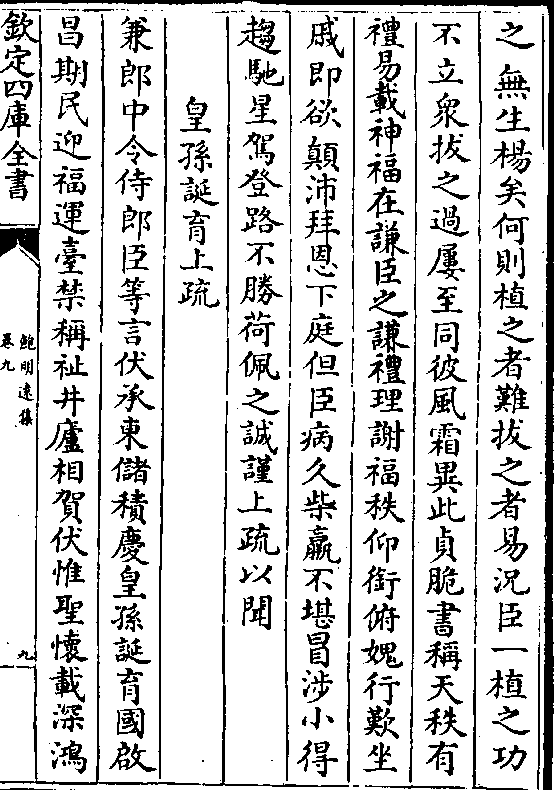 之無生楊矣何則植之者難拔之者易況臣一植之功
不立衆拔之過屢至同彼風霜異此貞脆書稱天秩有
禮易載神福在謙臣之謙禮理謝福秩仰銜俯媿行歎坐
戚即欲顛沛拜恩下庭但臣病久柴羸不堪冒涉小得
趨馳星駕登路不勝荷佩之誠謹上疏以聞
皇孫誕育上疏
兼郎中令侍郎臣等言伏承東儲積慶皇孫誕育國啟
昌期民迎福運臺禁稱祉井廬相賀伏惟聖懷載深鴻
欽定四庫全書
鮑明遠集
卷九
九